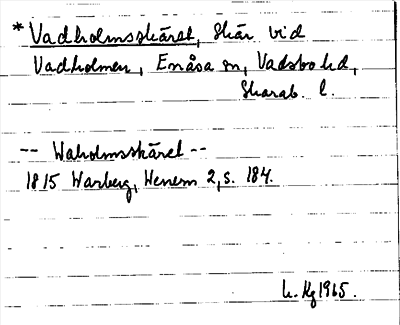 * Vadholmsskäret, skär vid
Vadholmen, Enåsa sn, Vadsbo hd,
Skarab. l.
-- Waholmsskäret --
1815 Warberg, Wenern 2, s. 184.
1965.